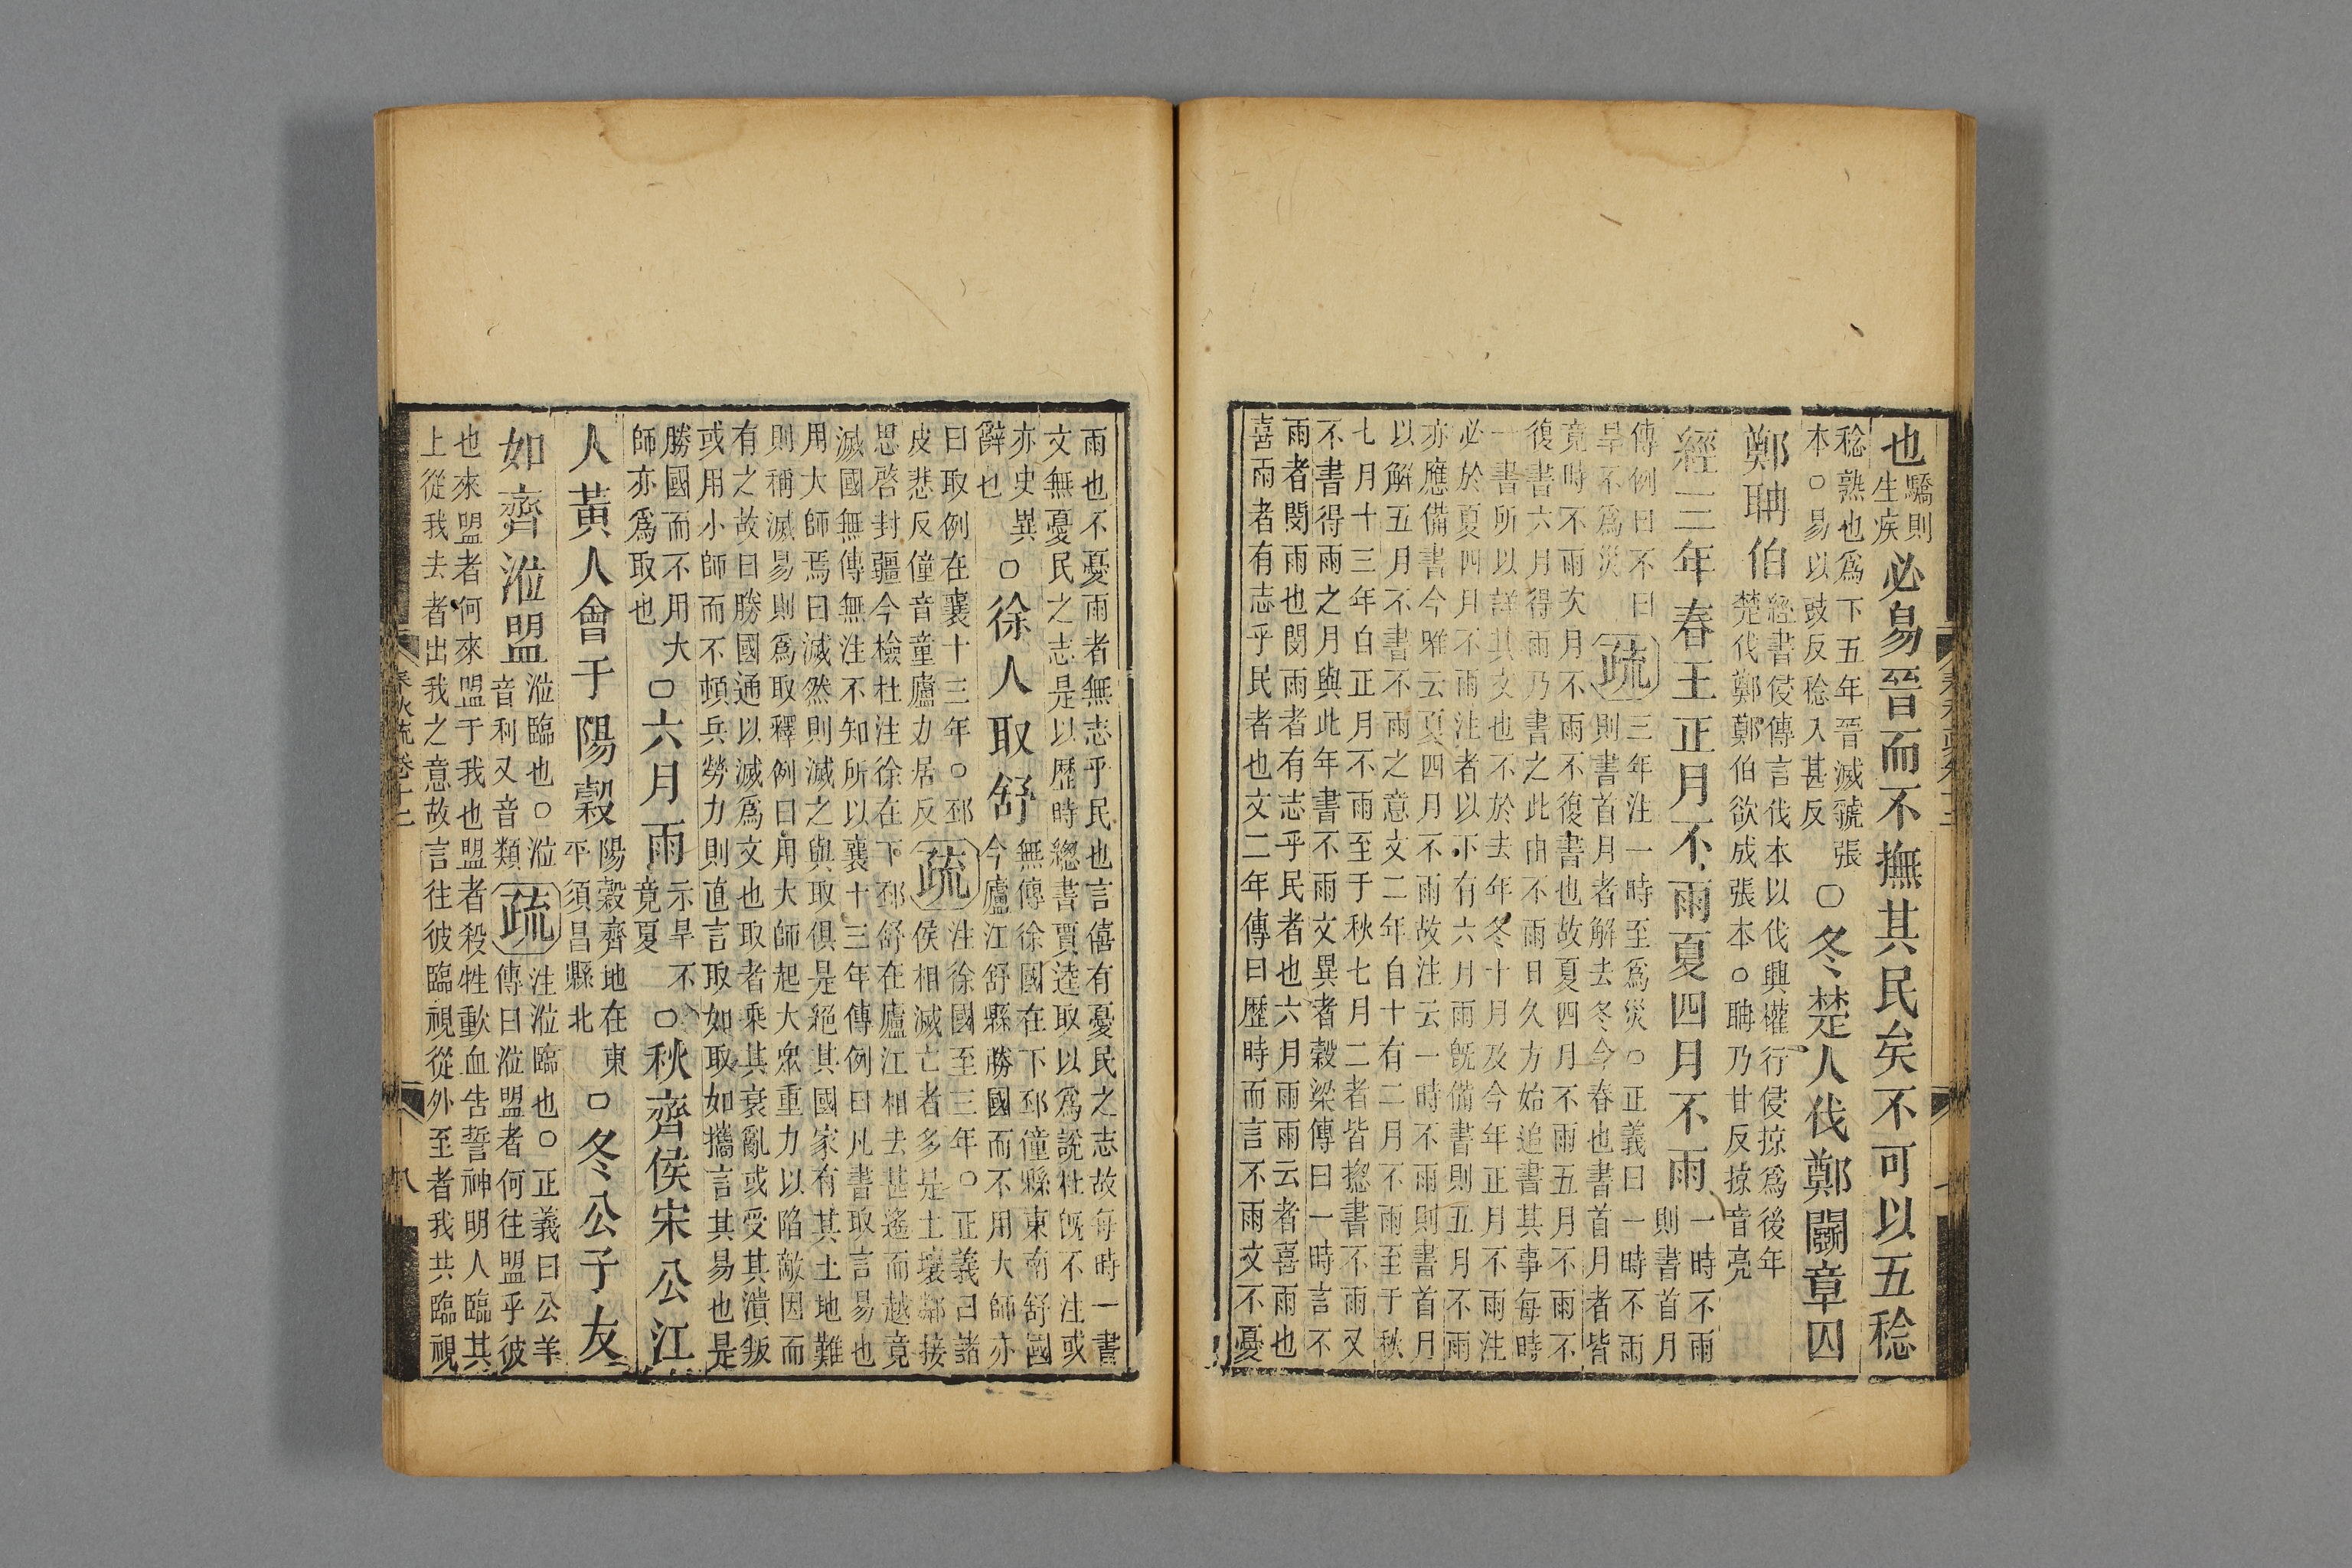 也驕則
生疾必易晉而不撫其民矣不可以五稔
稔熟也爲下五年晉滅虢張
本○易以豉反稔入甚反○冬楚人伐鄭鬭章囚
鄭聃伯經書侵傳言伐本以伐興權行侵掠爲後年
楚伐鄭鄭伯欲成張本○聃乃甘反掠音亮
經三年春王正月不雨夏四月不雨一時不雨
則書首月
傳例曰不曰
旱不爲災疏三年注一時至爲災○正義曰一時不雨
則書首月者解去冬今春也書首月者皆
竟時不雨次月不雨不復書也故夏四月不雨五月不雨不
復書六月得雨乃書之此由不雨日久方始追書其事每時
一書所以詳其文也不於去年冬十月及今年正月不雨注
必於夏四月不雨注者以下有六月雨旣備書則五月不雨
亦應備書今唯云夏四月不雨故注云一時不雨則書首月
以解五月不書不雨之意文二年自十有二月不雨至于秋
七月十三年自正月不雨至于秋七月二者皆揔書不雨又
不書得雨之月與此年書不雨文異者穀梁傳曰一時言不
雨者閔雨也閔雨者有志乎民者也六月雨雨云者喜雨也
喜雨者有志乎民者也文二年傳曰歷時而言不雨文不憂
雨也不憂雨者無志乎民也言僖有憂民之志故每時一書
文無憂民之志是以歷時總書賈逵取以爲說杜旣不注或
亦史異
辭也○徐人取舒無傳徐國在下邳僮縣東南舒國
今廬江舒縣勝國而不用大師亦
曰取例在襄十三年○邳
皮悲反僮音童廬力居反疏注徐國至三年○正義曰諸
侯相滅亡者多是土壤鄰接
思啓封疆今檢杜注徐在下邳舒在廬江相去甚遙而越竟
滅國無傳無注不知所以襄十三年傳例曰凡書取言易也
用大師焉曰滅然則滅之與取俱是絕其國家有其土地難
則稱滅易則爲取釋例曰用大師起大衆重力以陷敵因而
有之故曰勝國通以滅爲文也取者乘其衰亂或受其潰叛
或用小師而不頓兵勞力則直言取如取如攜言其易也是
勝國而不用大
師亦爲取也○六月雨示旱不
竟夏○秋齊侯宋公江
人黃人會于陽穀陽穀齊地在東
平須昌縣北○冬公子友
如齊涖盟涖臨也○涖
音利又音類疏注涖臨也○正義曰公羊
傳曰涖盟者何往盟乎彼
也來盟者何來盟于我也盟者殺牲歃血告誓神明人臨其
上從我去者出我之意故言往彼臨視從外至者我共臨視
春秋疏卷十二
八